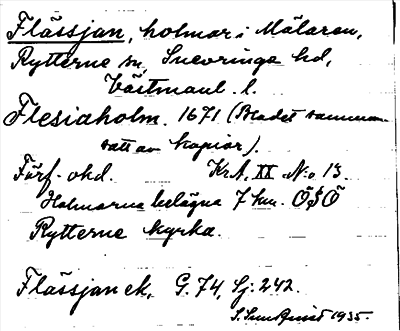 Flässjan, holmar i Mälaren,
Rytterne sn, Snevringe hd,
Västmanl. l.
Flesiaholm. 1671 (Bladet samman-
satt av kopior).
Förf. okd. Kr.A. XX N:o 13.
Holmarna belägna 7 km. ÖSÖ
Rytterne kyrka.
Flässjan ek. G. 74, Sj. 242.
1935.